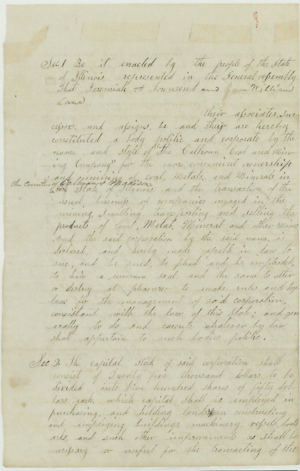 Sec 1 Be it enacted by the people of the State
of Illinois represented in the General Assembly
That Jeremiah A Townsend and William
their associates, suc-
cessors, and assigns, be and they are hereby
constituted a body politic and corporate by the
name and style of "The Calhoun Coal and Min-
ing Company" for the more convenient ownership
and mining of coal, Metals, and Minerals in
the counties of Calhoun &
State of Illinois, and the transaction of the
usual business of companies engaged in the
mining, transporting and selling the
products of Coal, Metals, Mineral and other
and the said corporation by the said name, is
declared and hereby made capable in law to
sue, and be sued, to plead and be impleaded,
to have a common seal and the same to alter
at pleasure to make rules and by
laws for the management of said corporation,
consistant with the laws of this State; and gen-
erally to do and execute whatever by law
shall appertain to such bodies politic.
Sec 2 The capital stock of said corporation shall
consist of Twenty five thousand dollars to be
divided into five hundred shares of fifty dol-
lars each, which capital shall be employed in
purchasing, and holding constructing
and employing buildings, machinery, vessels, boats
and such other improvements as shall be
necessary or useful for the transacting of the